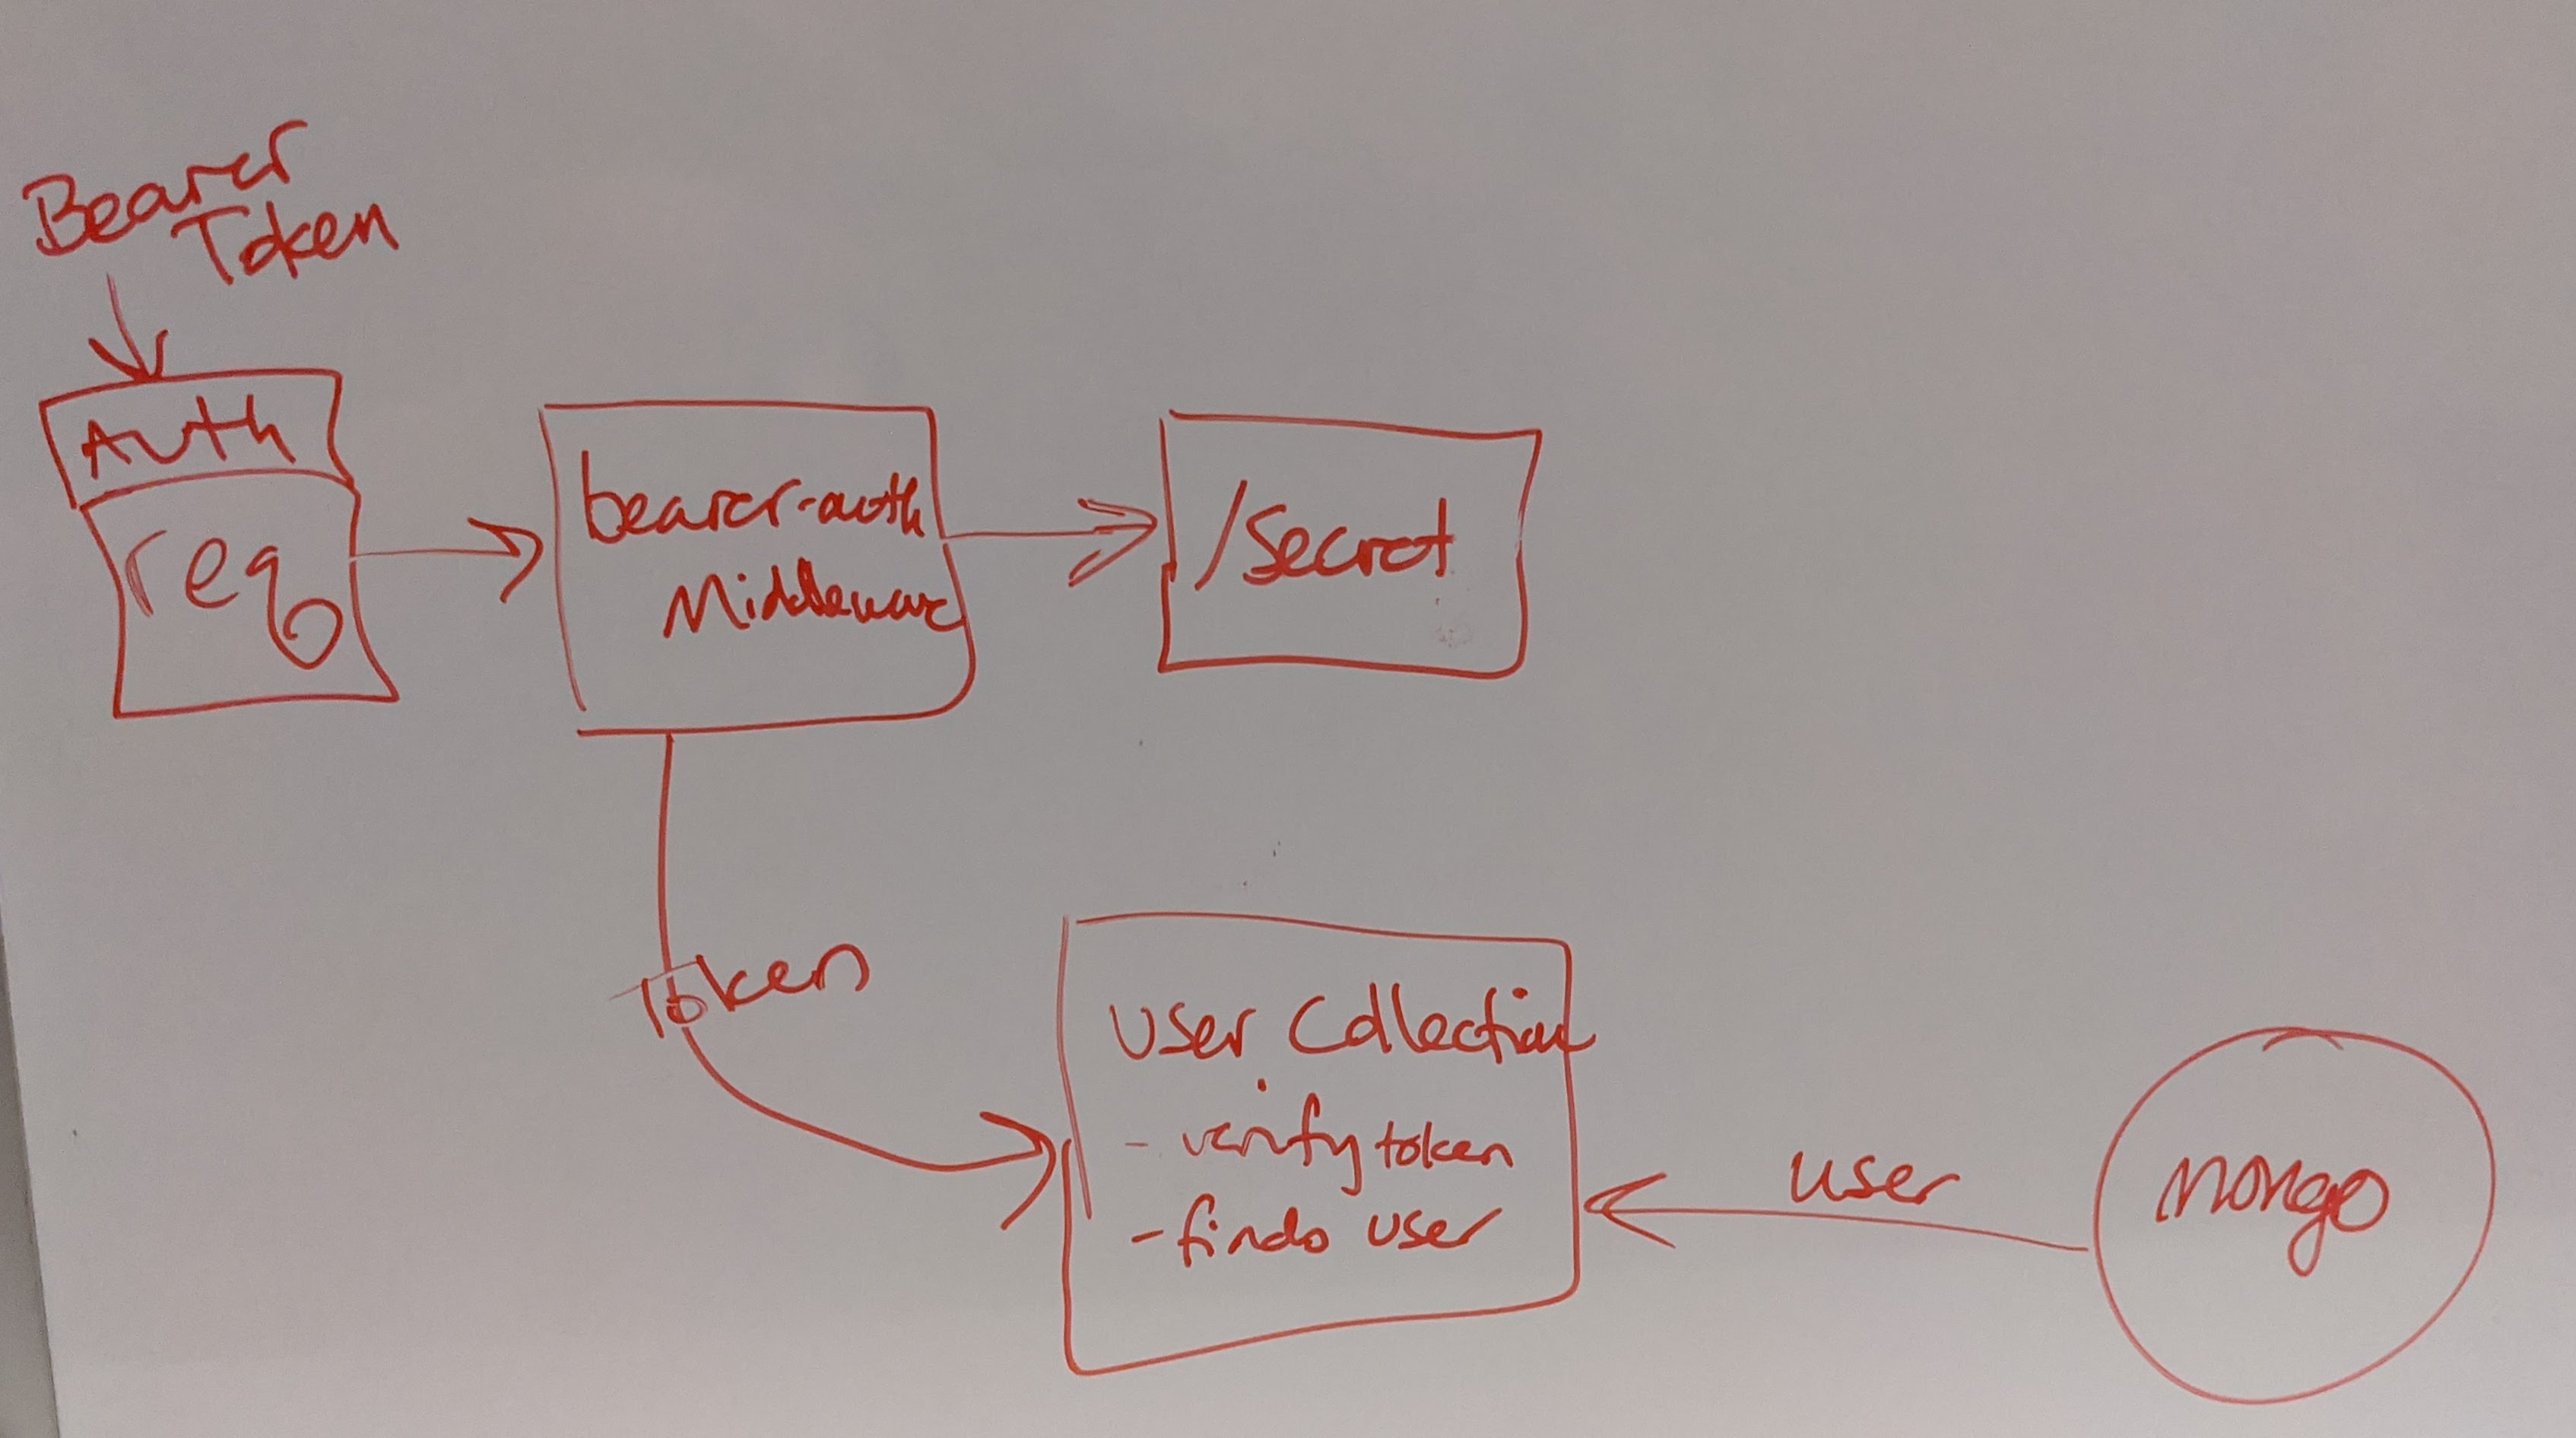 Bearer
Token
Auth
req
bearer-auth
Middleware
/Secret
Token
User Collection
- verify token
- findo user
user
mongo